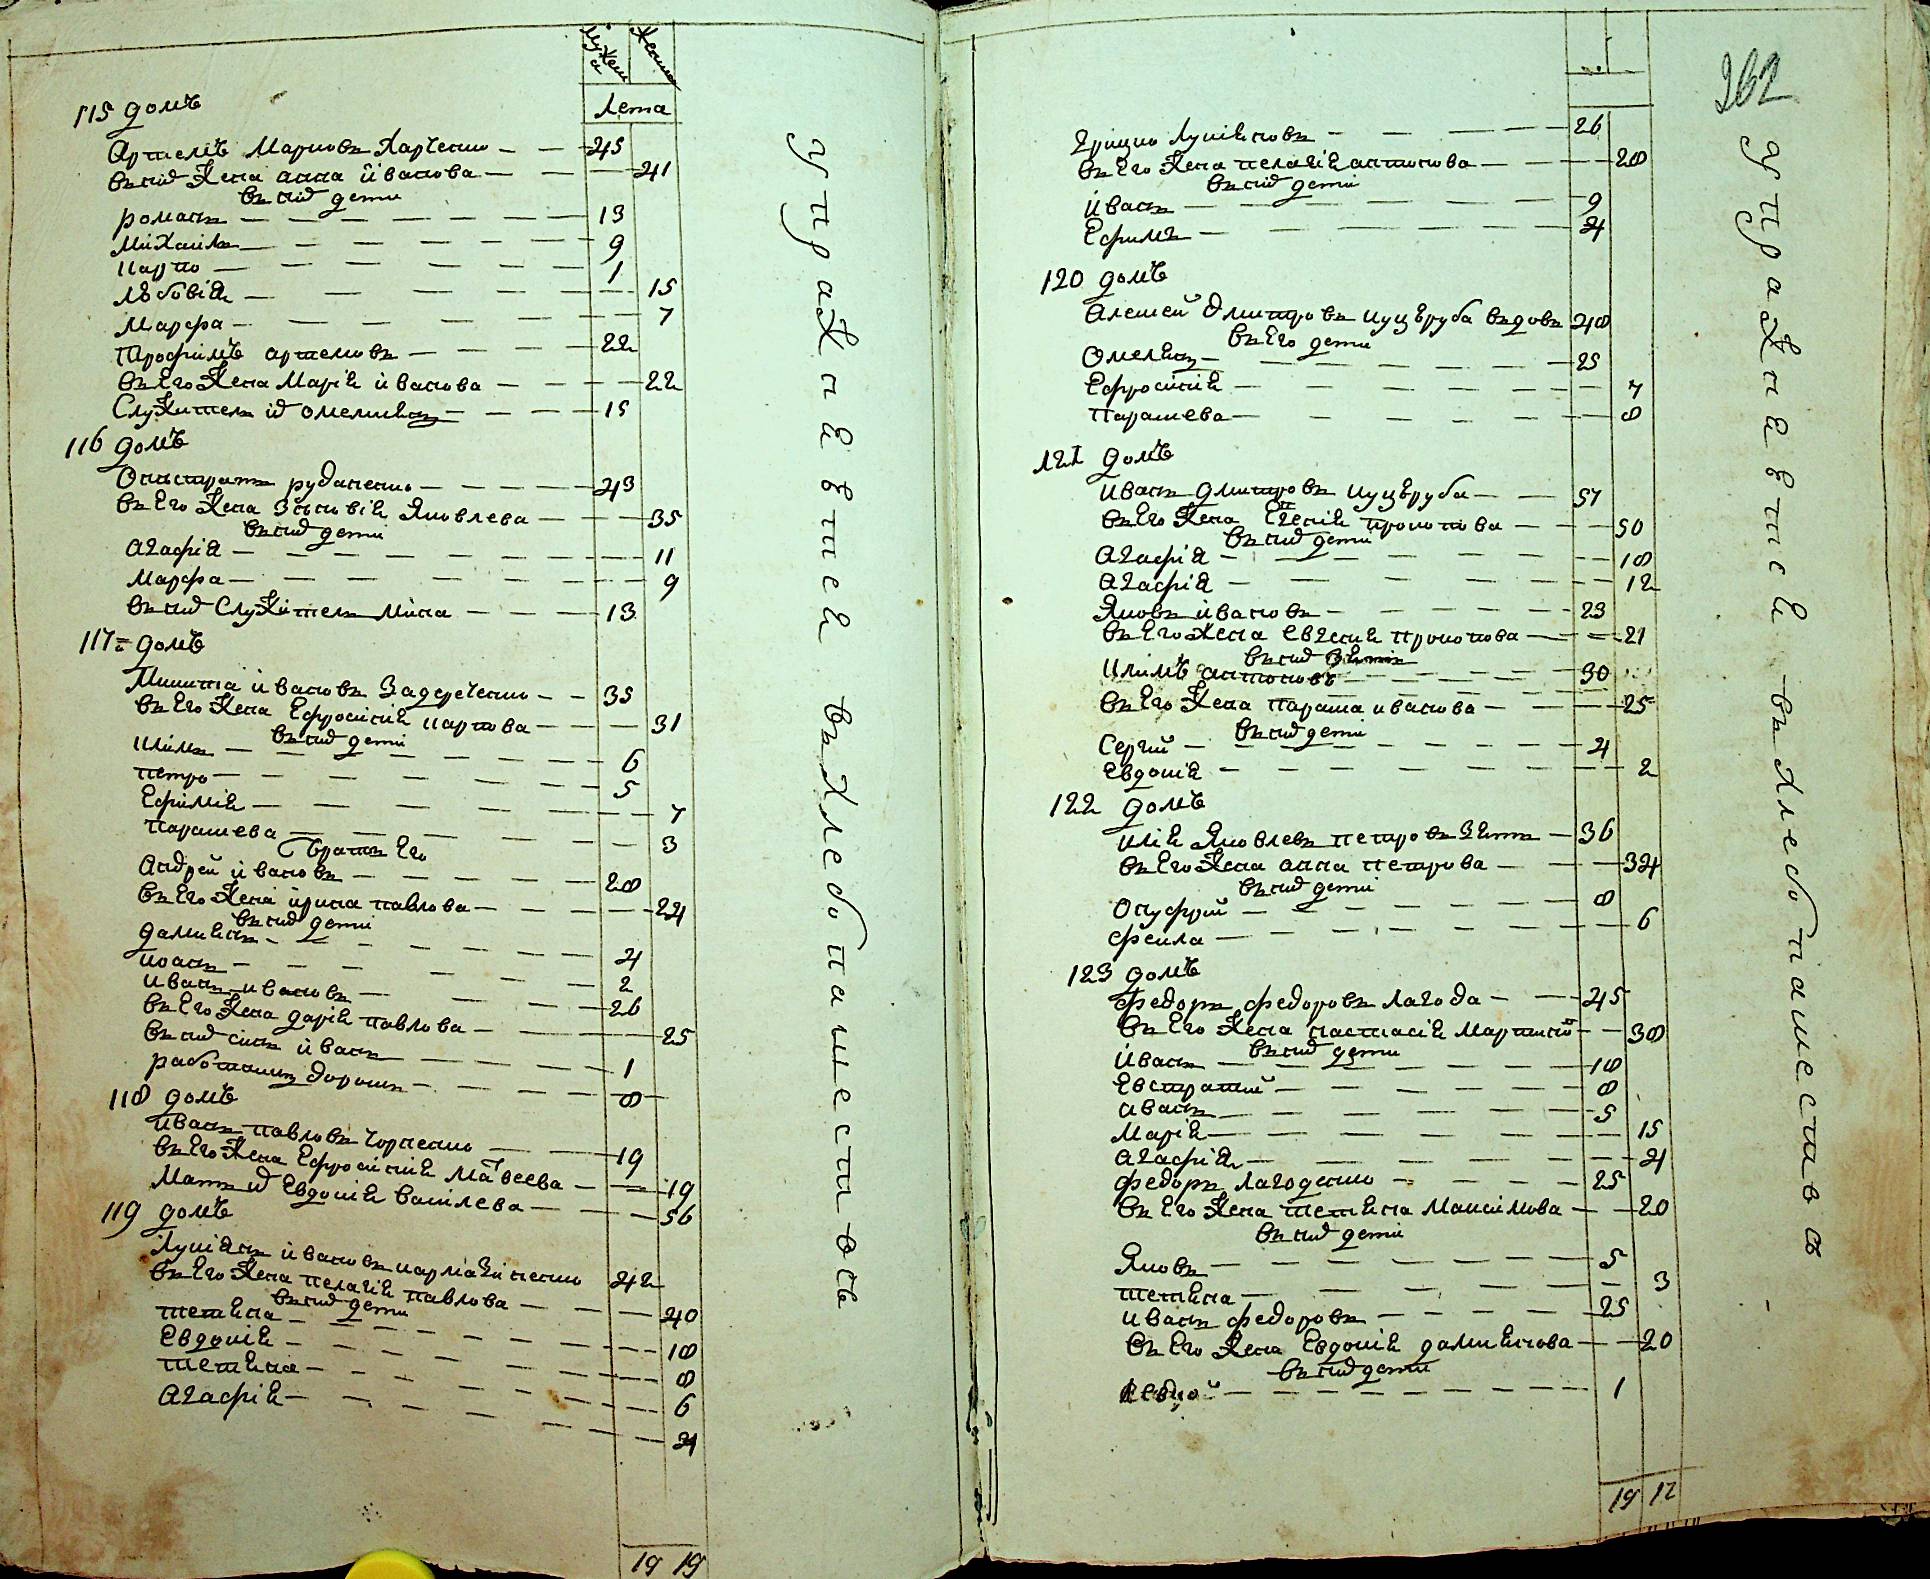 мужеска женска
лета
115 домъ
Артемъ Марковъ Харченко 45
въ него жена анна иванова 41
въ них дети
романъ 13
михаила 9
карпо 1
любовія 15
марфа 7
трофимъ артемовъ 22
въ Его жена Марія иванова 22
Служитель омелянъ 15
116 домъ
Онистратъ руданенко 43
въ Его жена Зѣновія Яковлева 35
въ них дети
Агафія 11
марфа 9
въ них Служитель Мина 13
117 домъ
Микита ивановъ Задереченко 35
въ Его жена Ефросинія карпова 31
въ них дети
клим 6
петро 5
Ефимія 7
парашева 3
братъ Его
Андрей ивановъ 28
въ Его жена ирина павлова 24
въ них дети
дамиянъ 4
иоанъ 2
иванъ ивановъ 26
въ Его жена дарія павлова 25
въ них синъ иванъ 1
работникъ дорошъ 8
118 домъ
иванъ павловъ Чорненко 19
въ Его жена Ефросинія матвеева 19
Мать Евдокия василева 56
119 домъ
Лукіянъ ивановъ кармазиненко 42
въ Его жена пелагія павлова 40
въ них дети
тетяна 18
Евдокія 8
тетяна 6
Агафія 4
19 19
упражняется въ хлебопашествовъ
262
Грицко Лукіяновъ 26
въ Его жена пелагія антонова 28
въ них дети
иванъ 9
Ефимъ 4
120 домъ
Алексей дмитровъ куцеруба вдовъ 48
въ Его дети
Омелянъ 25
Ефросинія 7
парашева 8
121 домъ
иванъ дмитровъ куцеруба 57
въ Его жена Евгенія прокопова 50
въ них дети
Агафія 18
Агафія 12
Яковъ ивановъ 23
въ Его жена евгения прокопова 21
въ них зять
климъ антоновъ 30
въ Его жена параша иванова 25
въ них дети
Сергий 4
Евдокія 2
122 домъ
илія Яковлевъ петровъ зять 36
въ Его жена анна петрова 34
въ них дети
Онуфрий 8
фекла 6
123 домъ
федоръ федоровъ лагода 45
въ Его жена настасія мартинова 38
въ них дети
иванъ 18
Евстратий 8
иванъ 5
Марія 15
Агафія 4
федоръ лагоденко 25
въ Его жена тетяна Максимова 20
въ них дети
Яковъ 5
тетяна 3
иванъ федоровъ 25
въ Его жена Евдокія дамиянова 20
въ них дети
1
19 12
упражняется въ хлебопашествовъ